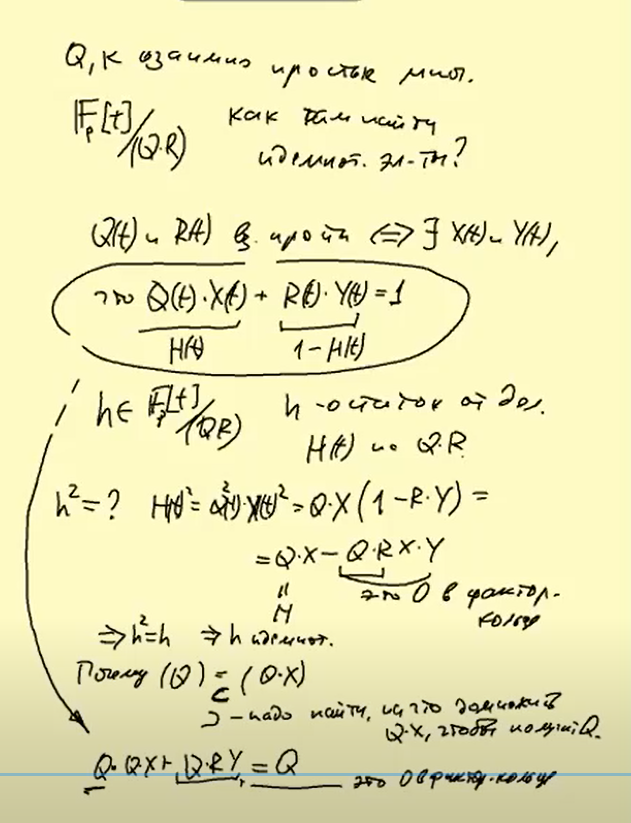 Q, R взаимно простые мног.
F_p[t]/(Q·R) как там найти
идемпот. эл-ты?
Q(t) и R(t) вз. просты ⟺ ∃ X(t) и Y(t),
что Q(t)·X(t) + R(t)·Y(t) = 1
H(t) 1 − H(t)
h ∈ F_p[t]/(QR) h - остаток от дел.
H(t) на Q·R
h² = ? H(t)² = Q²(t)·X(t)² = Q·X (1 − R·Y) =
= Q·X − Q·R X·Y
= H это 0 в фактор-
кольце
⇒ h² = h ⇒ h идемпот.
Почему (Q) = (Q·X)
⊂
⊃ - надо найти, на что домножить
Q·X, чтобы получить Q.
Q·QX + Q·R Y = Q это 0 в фактор-кольце